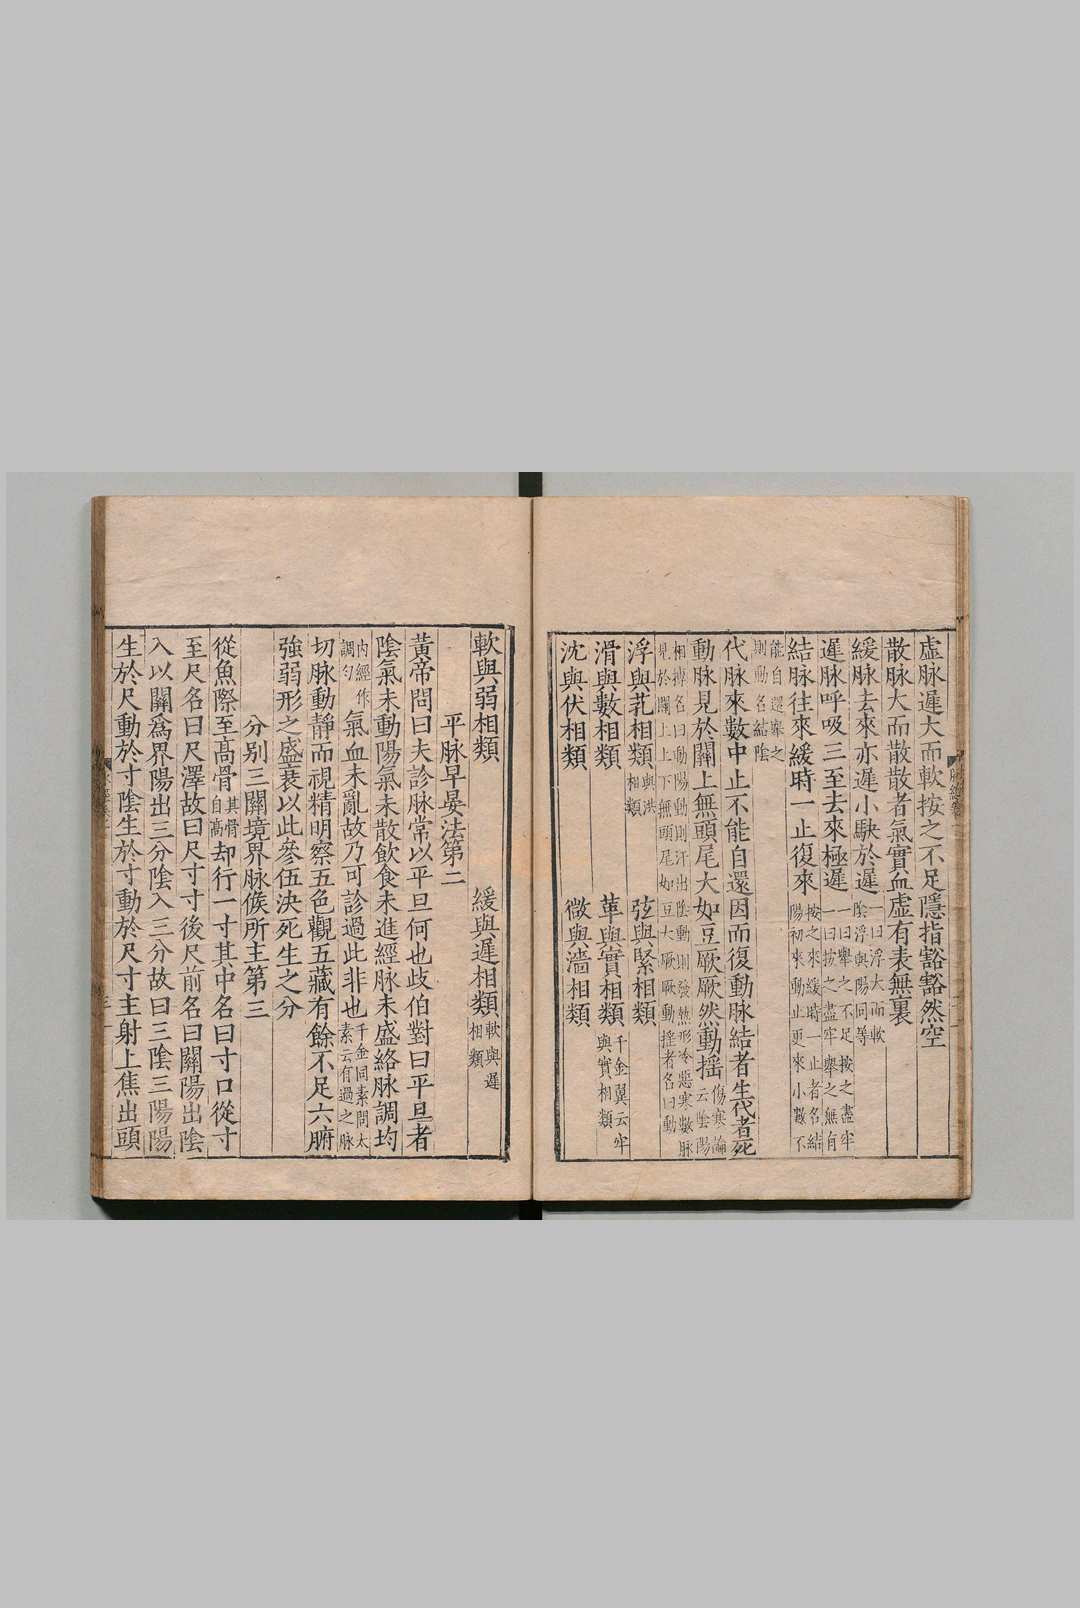 虛脉遲大而軟按之不足隱指豁豁然空
散脉大而散散者氣實血虛有表無裏
緩脉去來亦遲小駃於遲一曰浮大而軟陰浮與陽同等
遲脉呼吸三至去來極遲一曰舉之不足按之盡牢一曰按之盡牢舉之無有
結脉往來緩時一止復來按之來緩時一止者名結陽初來動止更來小數不
能自還舉之則動名結陰
代脉來數中止不能自還因而復動脉結者生代者死
動脉見於關上無頭尾大如豆厥厥然動搖傷寒論云陰陽
相搏名曰動陽動則汗出陰動則發熱形冷惡寒數脉見於關上上下無頭尾如豆大厥厥動搖者名曰動
浮與芤相類與洪相類　弦與緊相類
滑與數相類　革與實相類千金翼云牢與實相類
沈與伏相類　微與濇相類
軟與弱相類　緩與遲相類軟與遲相類
平脉早晏法第二
黃帝問曰夫診脉常以平旦何也歧伯對曰平旦者
陰氣未動陽氣未散飲食未進經脉未盛絡脉調均
內經作調勻氣血未亂故乃可診過此非也千金同素問太素云有過之脉
切脉動靜而視精明察五色觀五藏有餘不足六腑
強弱形之盛衰以此參伍決死生之分
分别三關境界脉候所主第三
從魚際至高骨其骨自高却行一寸其中名曰寸口從寸
至尺名曰尺澤故曰尺寸寸後尺前名曰關陽出陰
入以關爲界陽出三分陰入三分故曰三陰三陽陽
生於尺動於寸陰生於寸動於尺寸主射上焦出頭